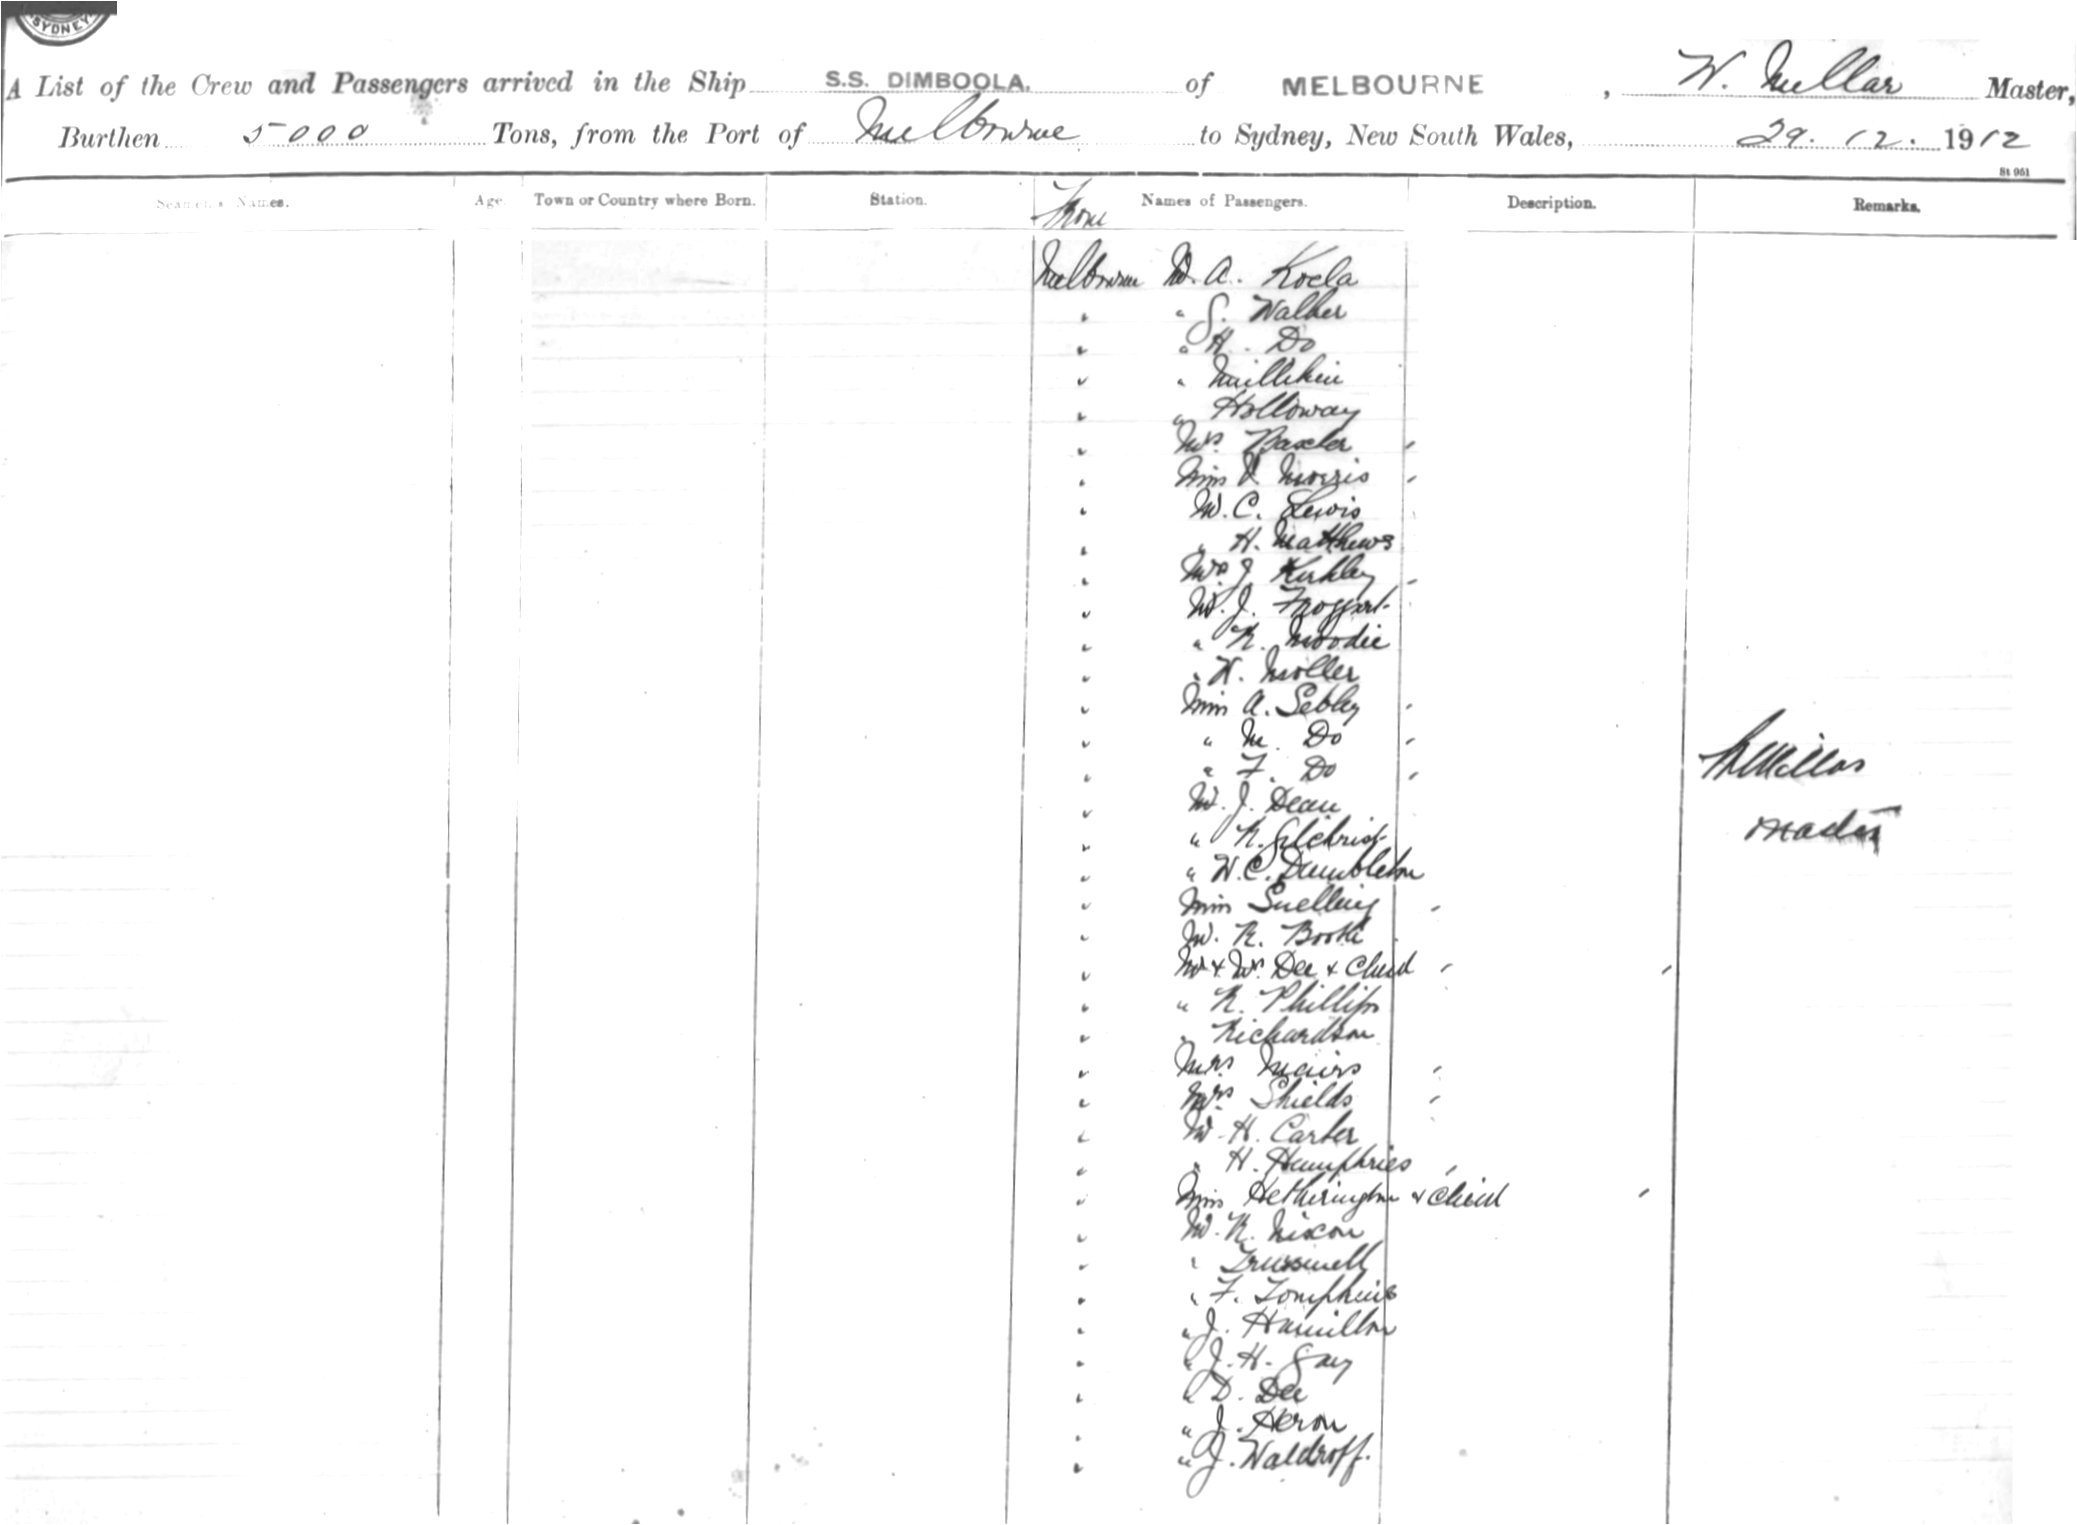 SYDNEY
A List of the Crew and Passengers arrived in the Ship S.S. DIMBOOLA. of MELBOURNE, W. Millar Master,
Burthen 5000 Tons, from the Port of Melbourne to Sydney, New South Wales, 29. 12. 1912
St 961
Seamen's Names. Age. Town or Country where Born. Station. Names of Passengers. Description. Remarks.
From
Melbourne Mr. A. Koela
" " S. Walker
" " H. Do
" " Millikin
" " Holloway
" Mrs. Baxter
" Miss Morris
" Mr. C. Lewis
" " H. Matthews
" Mrs. J Kirkley
" Mr. J. Froggart
" " R. Moodie
" " W. Moller
" Miss A. Sebley
" " M. Do
" " F. Do
WMillar
" Mr. J. Dean
Master
" " R. Gilchrist
" " W.C. Dumbleton
" Miss Snelling
" Mr. R. Booth
" Mr & Mrs. Dee & Child
" " R. Phillips
" " Richardson
" Mrs. Mairs
" Mrs. Shields
" Mr. H. Carter
" " H. Humphries
" Miss Hetherington & Child
" Mr. R. Nixon
" " Trusswell
" " F. Tomphins
" " J. Hamilton
" " J. H. Gay
" " D. Dee
" " J. Heron
" " J. Waldroff.